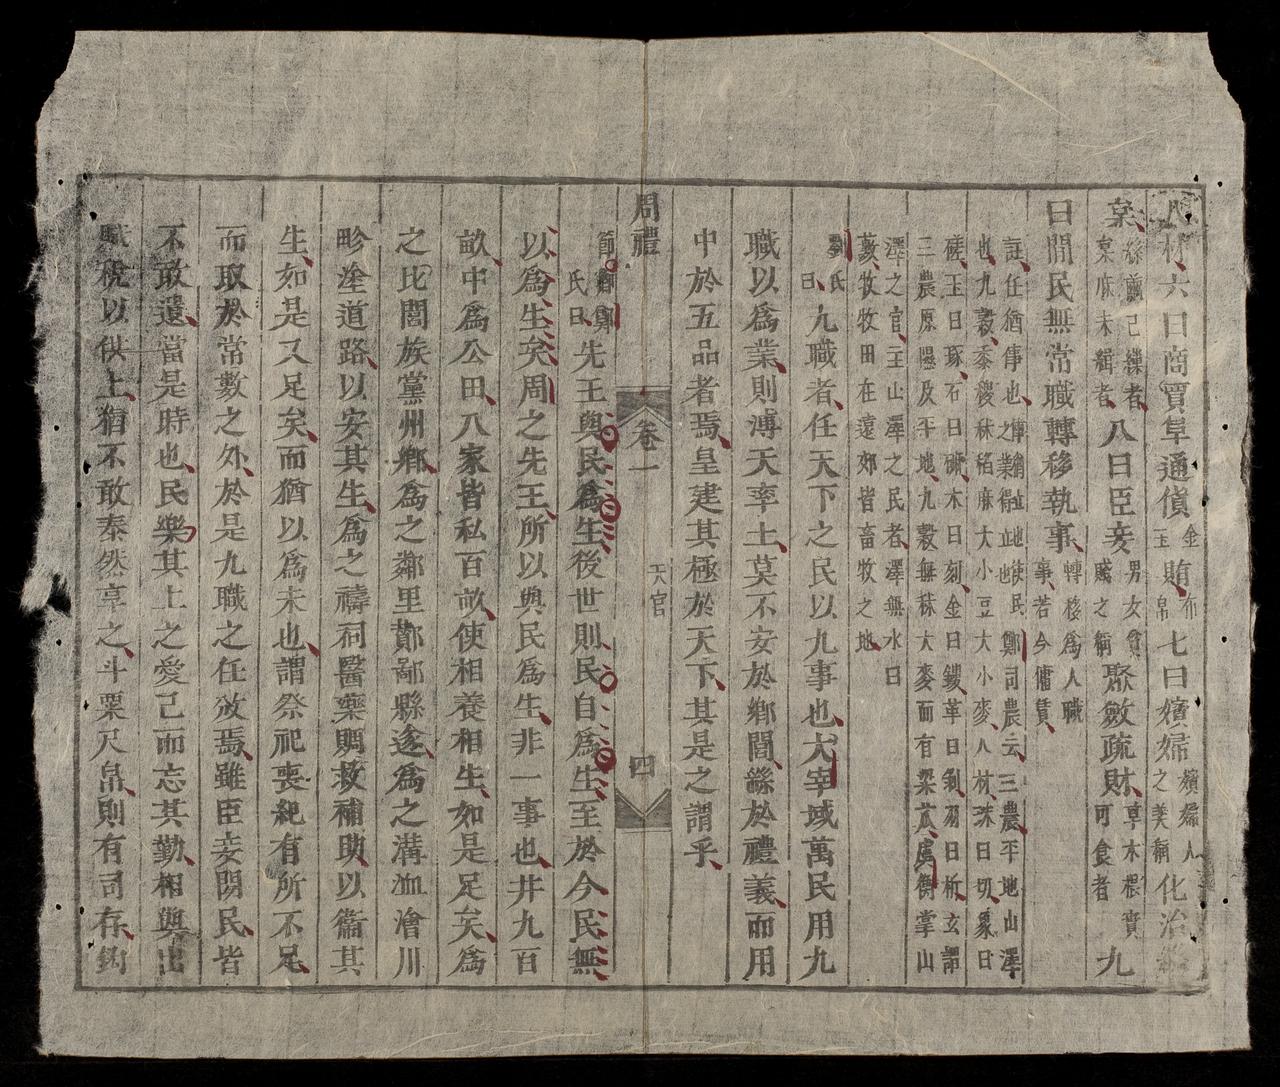 八材六曰商賈阜通貨金玉賄布帛七曰嬪婦嬪婦人之美稱化治絲
枲絲繭已繅者枲麻未緝者八曰臣妾男女貧賤之稱聚斂疏財草木根實可食者九
曰閒民無常職轉移執事轉移爲人職事若今傭賃
註任猶倳也倳猶立也地使民之業得立地使民鄭司農云三農平地山澤
也九穀黍稷秫稻麻大小豆大小麥八材珠曰切象曰
磋玉曰琢石曰磨木曰刻金曰鏤革曰剝羽曰析玄謂
三農原隰及平地九穀無秫大麥而有粱苽虞衡掌山
澤之官主山澤之民者澤無水曰
藪牧牧田在遠郊皆畜牧之地
劉氏曰九職者任天下之民以九事也大宰域萬民用九
職以爲業則溥天率土莫不安於鄉閭繇於禮義而用
中於五品者焉皇建其極於天下其是之謂乎
周禮 卷一 天官 四
節鄭氏曰先王與民爲生後世則民自爲生至於今民無
以爲生矣周之先王所以與民爲生非一事也井九百
畝中爲公田八家皆私百畝使相養相生如是足矣爲
之比閭族黨州鄉爲之鄰里酇鄙縣遂爲之溝洫澮川
畛塗道路以安其生爲之禱祠醫藥賙救補助以衞其
生如是又足矣而猶以爲未也謂祭祀喪紀有所不足
而取於常數之外於是九職之任攽焉雖臣妾閒民皆
不敢遺當是時也民樂其上之愛己而忘其勤相與出
賦稅以供上猶不敢泰然享之斗粟尺帛則有司存鈎